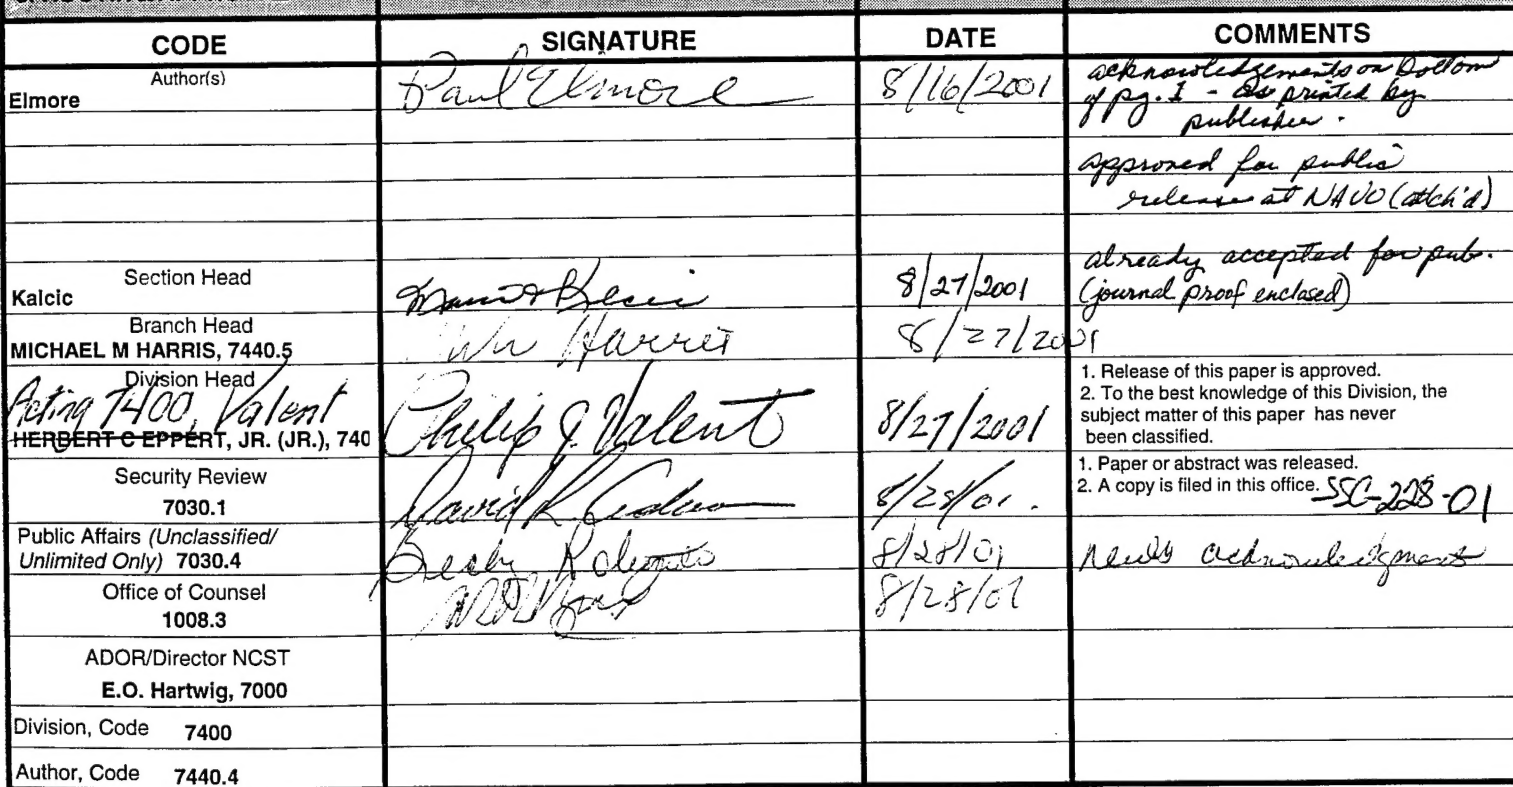 CODE SIGNATURE DATE COMMENTS
Author(s)
Elmore Paul Elmore 8/16/2001 acknowledgements on bottom
of pg. 1 - as printed by
publisher.
approved for public
release at NAVO (attch'd)
Section Head
Kalcic 8/27/2001 already accepted for pub.
(journal proof enclosed)
Branch Head
MICHAEL M HARRIS, 7440.5 Harris 8/27/2001
Division Head
Acting 7400, Valent
HERBERT C EPPERT, JR. (JR.), 740 Philip J. Valent 8/27/2001
1. Release of this paper is approved.
2. To the best knowledge of this Division, the
subject matter of this paper has never
been classified.
Security Review
7030.1 David K. 8/28/01.
1. Paper or abstract was released.
2. A copy is filed in this office. SSC-228-01
Public Affairs (Unclassified/
Unlimited Only) 7030.4 8/28/01 acknowledgment
Office of Counsel
1008.3 8/28/01
ADOR/Director NCST
E.O. Hartwig, 7000
Division, Code 7400
Author, Code 7440.4